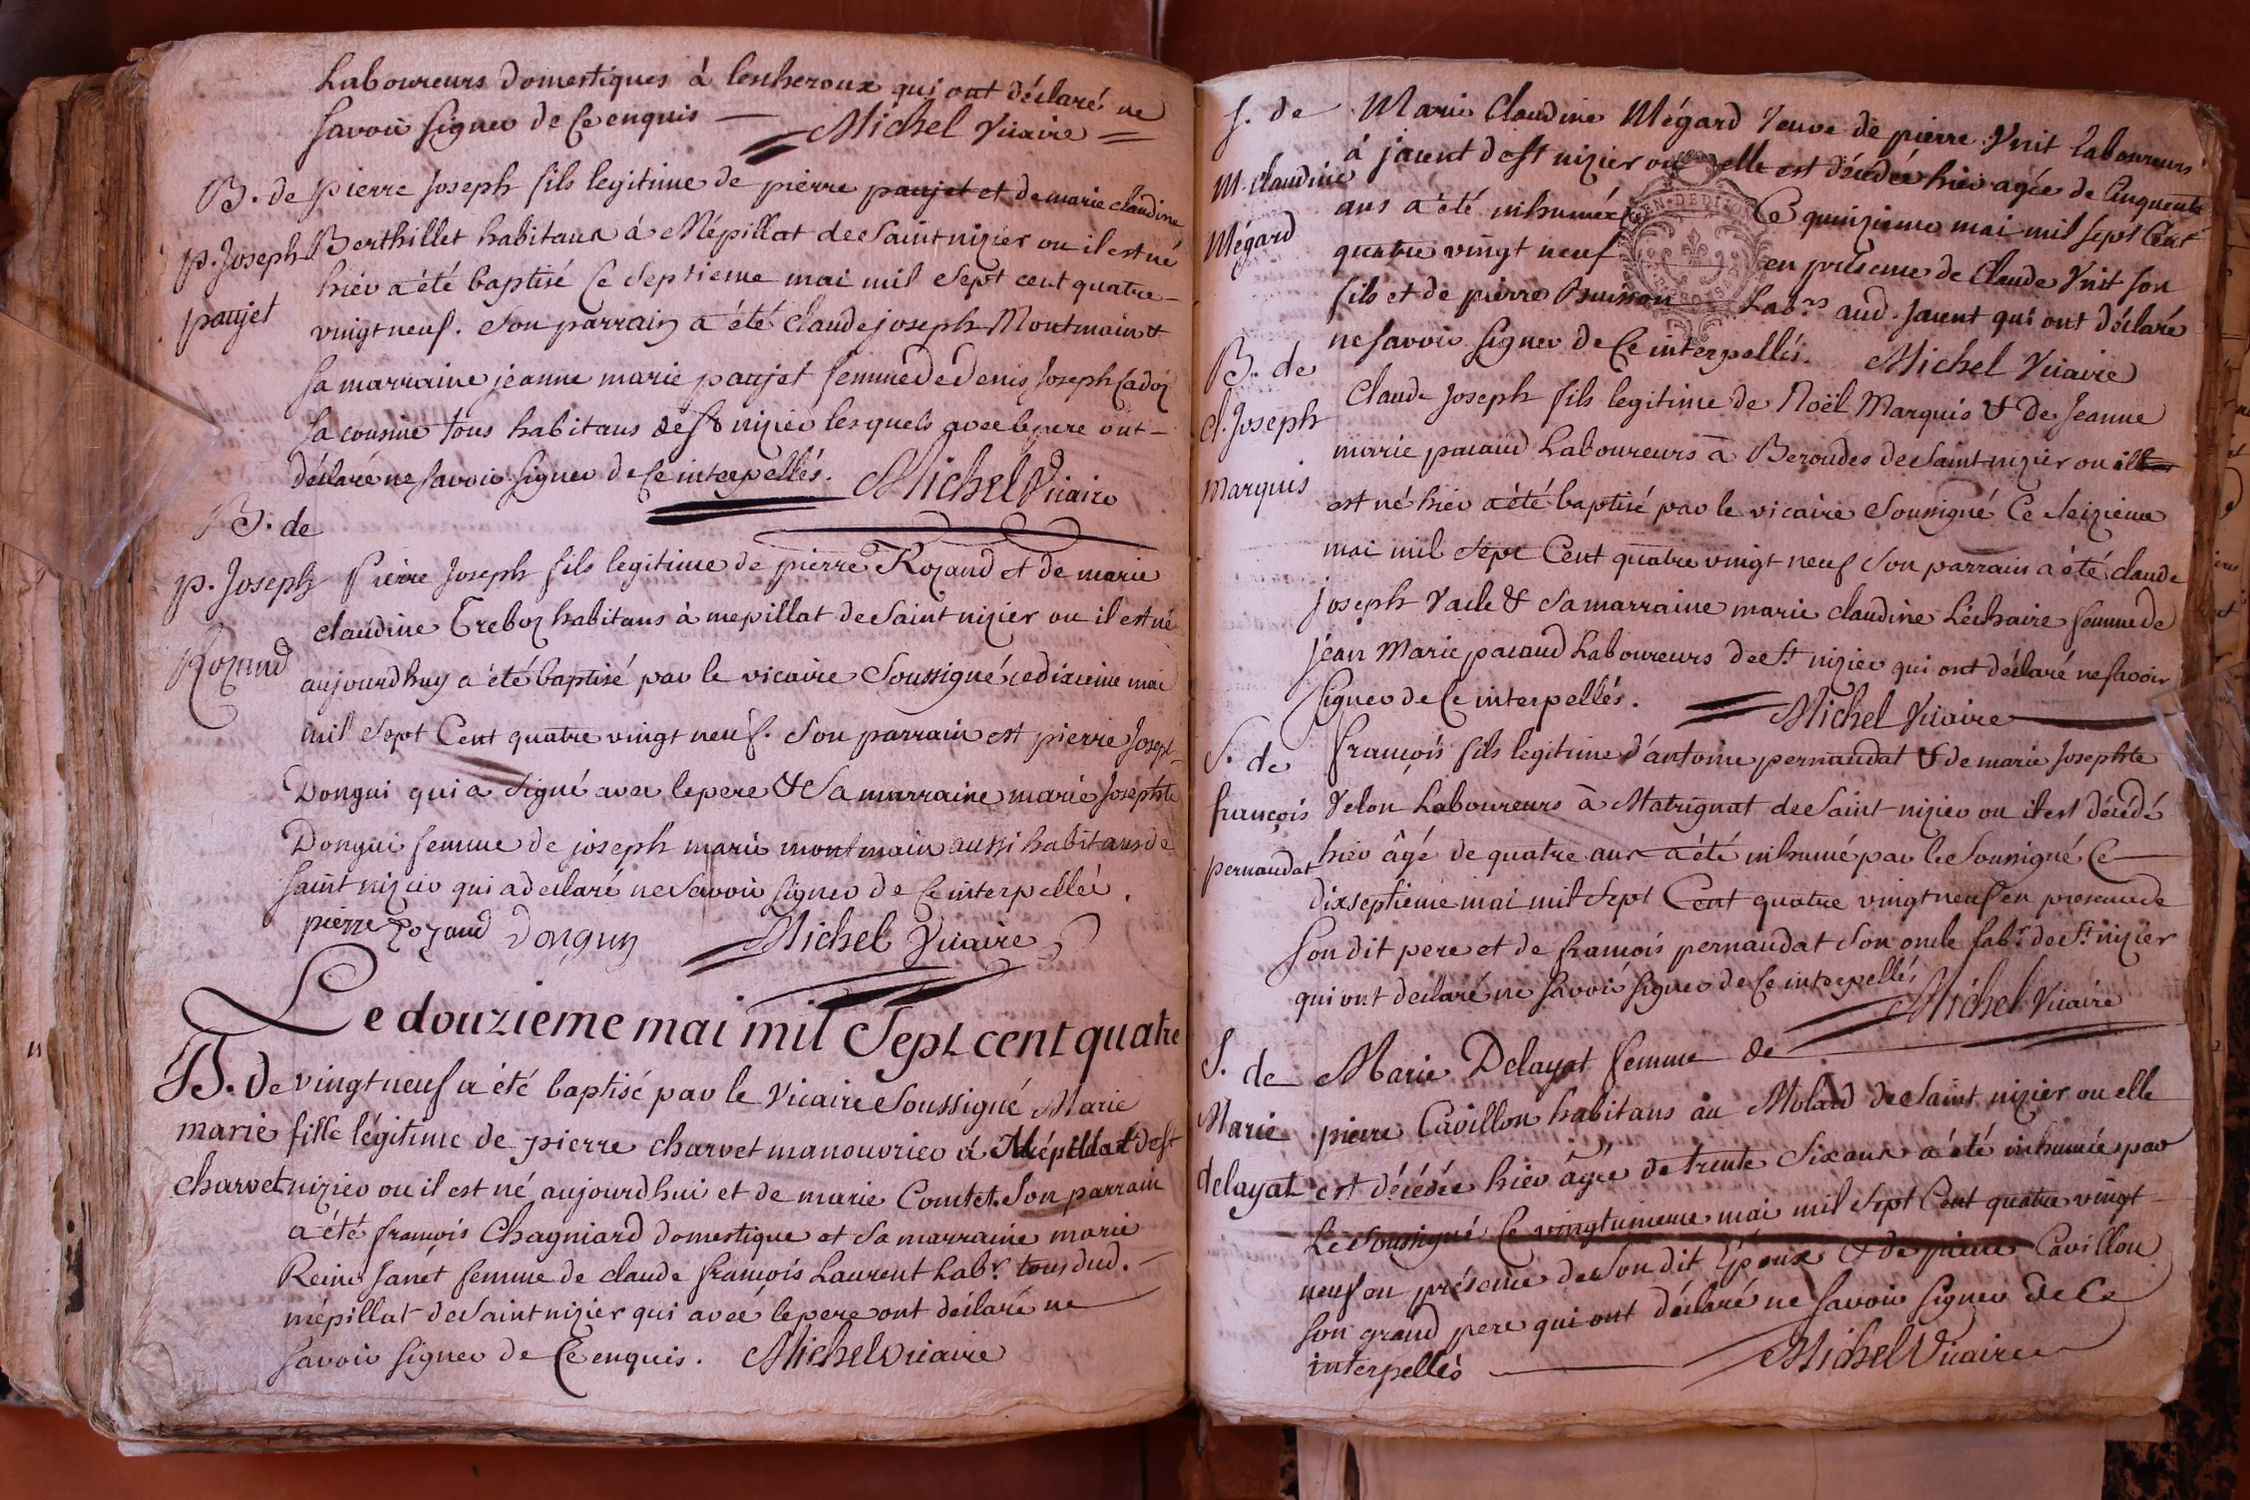 Laboureurs domestiques à lescheroux qui ont déclaré ne
savoir signer de ce enquis — Michel Vicaire
B. de
p. Joseph
paujet
pierre Joseph fils legitime de pierre paujet et de marie claudine
Berthillet habitans à Mépillat de Saint nizier ou il est né
hier a été baptisé ce septieme mai mil sept cent quatre
vingt neuf. son parrain a été claude joseph Montmain &
sa marraine jeanne marie paujet femme de denis Joseph
sa cousine tous habitans de st nizier lesquels avec le pere ont
déclaré ne savoir signer de ce interpellés. Michel Vicaire
B. de
p. Joseph
Rozand
Pierre Joseph fils legitime de pierre Rozand et de marie
claudine Treboz habitans à mepillat de Saint nizier ou il est né
aujourdhuy a été baptisé par le vicaire Soussigné ce dixieme mai
mil sept Cent quatre vingt neuf. Son parrain est pierre Joseph
Dongui qui a signé avec le pere & Sa marraine marie Josephte
Dongui femme de joseph marie montmain aussi habitans de
saint nizier qui a declaré ne savoir signer de ce interpellée.
pierre Rozand Donguy Michel Vicaire
Le douzieme mai mil Sept cent quatre
B. de
marie
charvet
vingt neuf a été baptisé par le Vicaire Soussigné Marie
fille légitime de pierre charvet manouvrier à Mépillat de st
nizier ou il est né aujourdhui et de marie Comtet. Son parrain
a été françois Chagniard domestique et Sa marraine marie
Reine Janet femme de claude françois Laurent Labr. tous dud.
mépillat de Saint nizier qui avec le pere ont déclaré ne
savoir signer de Ce enquis. Michel vicaire
S. de
M. claudine
Mégard
Marie Claudine Mégard Veuve de pierre Vuit laboureurs
à jaient de st nizier ou elle est décédée hier agée de Cinquante
ans a été inhumée Ce quinzieme mai mil sept Cent
quatre vingt neuf en présence de Claude Vuit son
fils et de pierre Buisson Labrs aud. Jaient qui ont déclaré
ne savoir signer de ce interpellés. Michel Vicaire
B. de
cl. Joseph
Marquis
Claude Joseph fils legitime de Noël Marquis & De Jeanne
marie pacaud Laboureurs à Beroudes de Saint nizier ou il
est né hier a été baptisé par le vicaire Soussigné Ce seizieme
mai mil sept Cent quatre vingt neuf Son parrain a été claude
Joseph & Sa marraine marie claudine Léchaire femme de
jean Marie pacaud Laboureurs de St nizier qui ont déclaré ne savoir
signer de Ce interpellés. Michel Vicaire
S. de
françois
pernaudat
françois fils legitime d'antoine pernaudat & de marie Josephte
Velon Laboureurs à Matrignat de Saint nizier ou il est décédé
hier âgé de quatre ans a été inhumé par le Soussigné Ce
dix septieme mai mil sept Cent quatre vingt neuf en presence de
son dit pere et de françois pernaudat Son oncle labr. de St nizier
qui ont declaré ne savoir signer de Ce interpellés Michel Vicaire
S. de
Marie
delayat
Marie Delayat femme de
pierre Cavillon habitans au Molard de Saint nizier ou elle
est décédée hier âgée de trente Six ans a été inhumée par
Le Soussigné Ce vingtunieme mai mil sept Cent quatre vingt
neuf en présence de Son dit Epoux & de pierre Cavillon
son grand pere qui ont déclaré ne savoir signer de Ce
interpellés Michel Vicaire